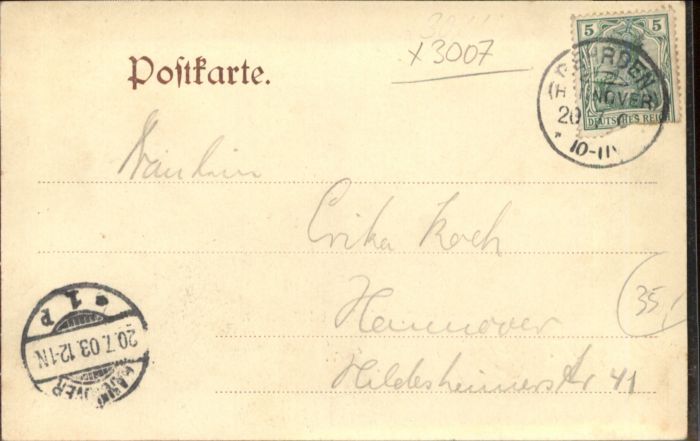 Postkarte.
x3007
5 5
DEUTSCHES REICH
GEHRDEN
(HANNOVER)
20
* 10-11V
Fräulein
Erika Koch
Hannover
Hildesheimerstr 41
35,
* 1 P
20.7.03.12-1N
HANNOVER